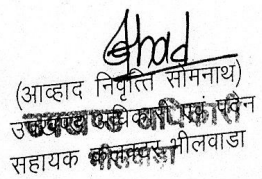 (आव्हाद निवृत्ति सोमनाथ)
उपखण्ड अधिकारी एवं पदेन
सहायक कलक्टर भीलवाडा